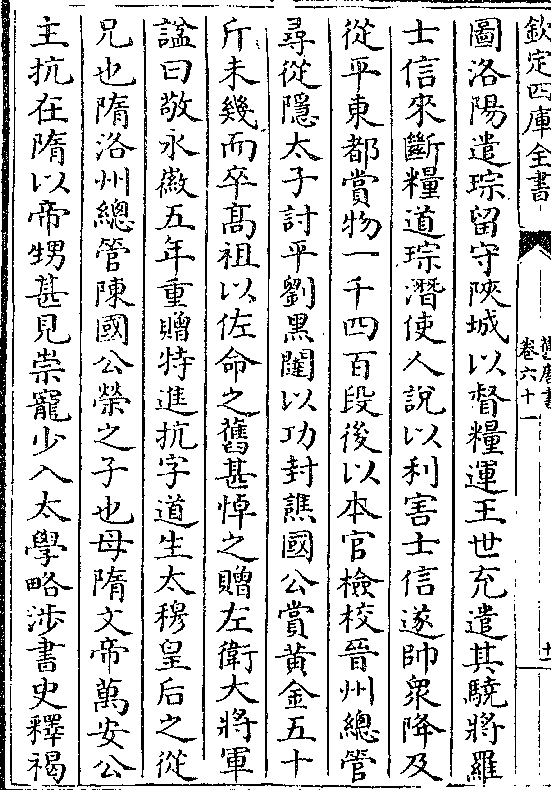 欽定四庫全書
舊唐書
卷六十一
十一
圖洛陽遣琮留守陜城以督糧運王世充遣其驍將羅
士信來斷糧道琮潛使人說以利害士信遂帥衆降及
從平東都賞物一千四百段後以本官檢校晉州總管
尋從隱太子討平劉黑闥以功封譙國公賞黄金五十
斤未幾而卒髙祖以佐命之舊甚悼之贈左衛大將軍
諡曰敬永徽五年重贈特進抗字道生太穆皇后之從
兄也隋洛州總管陳國公榮之子也母隋文帝萬安公
主抗在隋以帝甥甚見崇寵少入太學略涉書史釋褐